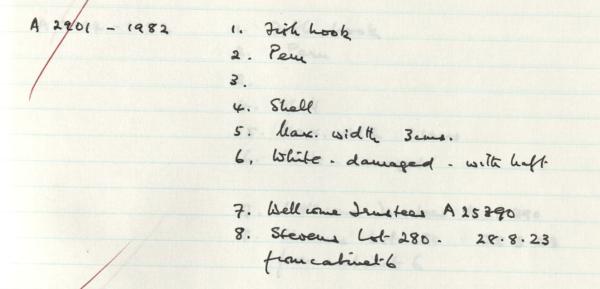 A 2901 - 1982 1. Fish hook
2. Peru
3.
4. Shell
5. Max. width 3cms.
6. White - damaged - with haft
7. Wellcome Trustees A 25390
8. Stevens Lot 280. 28.8.23
from cabinet 6